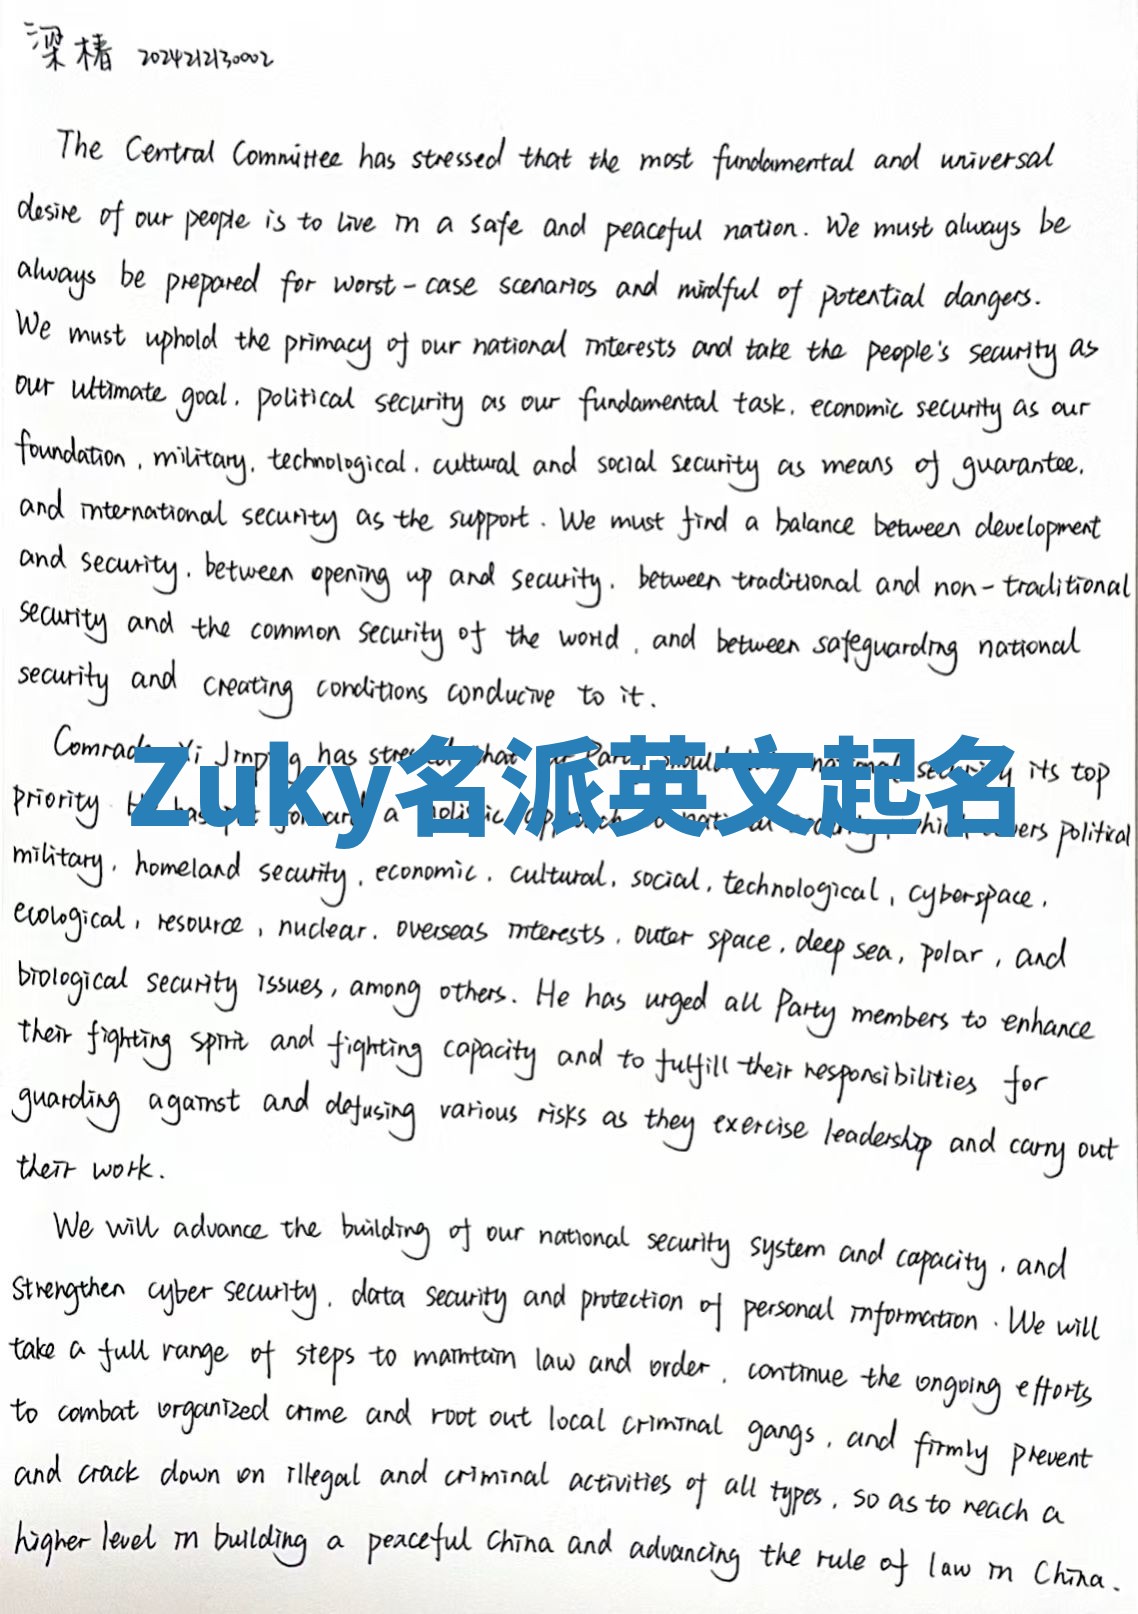 梁椿 2024212130002
The Central Committee has stressed that the most fundamental and universal
desire of our people is to live in a safe and peaceful nation. We must always be
always be prepared for worst-case scenarios and mindful of potential dangers.
We must uphold the primacy of our national interests and take the people's security as
our ultimate goal, political security as our fundamental task, economic security as our
foundation, military, technological, cultural and social security as means of guarantee,
and international security as the support. We must find a balance between development
and security, between opening up and security, between traditional and non-traditional
security and the common security of the world, and between safeguarding national
security and creating conditions conducive to it.
Comrade Xi Jinping has stressed that Party should national security its top
Zuky名派英文起名
priority. He has put forward a holistic approach national security, which covers political
military, homeland security, economic, cultural, social, technological, cyberspace,
ecological, resource, nuclear, overseas interests, outer space, deep sea, polar, and
biological security issues, among others. He has urged all Party members to enhance
their fighting spirit and fighting capacity and to fulfill their responsibilities for
guarding against and defusing various risks as they exercise leadership and carry out
their work.
We will advance the building of our national security system and capacity, and
strengthen cyber security, data security and protection of personal information. We will
take a full range of steps to maintain law and order, continue the ongoing efforts
to combat organized crime and root out local criminal gangs, and firmly prevent
and crack down on illegal and criminal activities of all types, so as to reach a
higher level in building a peaceful China and advancing the rule of law in China.